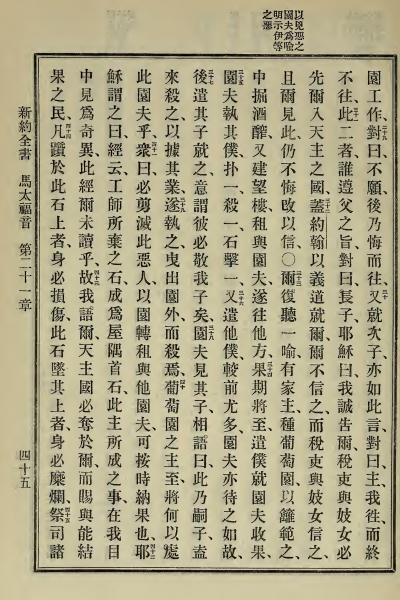 以兇惡之
園夫爲喻
明示伊等
之罪
園工作、對曰、不願、後乃悔而往、三十又就次子、亦如此言、對曰、主我徃、而終
不往、三十一此二者、誰遵父之旨、對曰、長子、耶穌曰、我誠吿爾、稅吏與妓女、必
先爾入天主之國、三十二蓋約翰以義道就爾、爾不信之、而稅吏與妓女信之、
且爾見此、仍不悔改以信、○三十三爾復聽一喻、有家主種葡萄園、以籬範之、
中掘酒醡、又建望樓、租與園夫、遂往他方、三十四果期將至、遣僕就園夫收果、
三十五園夫執其僕、扑一、殺一、石擊一、三十六又遣他僕、較前尤多、園夫亦待之如故、
三十七後遣其子就之、意謂彼必敬我子矣、三十八園夫見其子、相語曰、此乃嗣子、盍
來殺之、以據其業、三十九遂執之、曳出園外而殺焉、四十葡萄園之主至、將何以處
此園夫乎、四十一衆曰、必剪滅此惡人、以園轉租與他園夫、可按時納果也、四十二耶
穌謂之曰、經云、工師所棄之石、成爲屋隅首石、此主所成之事、在我目
中見爲奇異、此經爾未讀乎、四十三故我語爾、天主國必奪於爾、而賜與能結
果之民、四十四凡躓於此石上者、身必損傷、此石墜其上者、身必糜爛、四十五祭司諸
新約全書 馬太福音 第二十一章 四十五